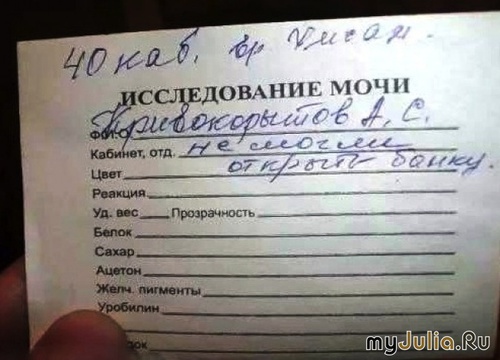 40 каб. вр
ИССЛЕДОВАНИЕ МОЧИ
Кривокорытов А. С.
Кабинет, отд. не могли
Цвет открыть банку.
Реакция
Уд. вес Прозрачность
Белок
Сахар
Ацетон
Желч. пигменты
Уробилин
myJulia.Ru